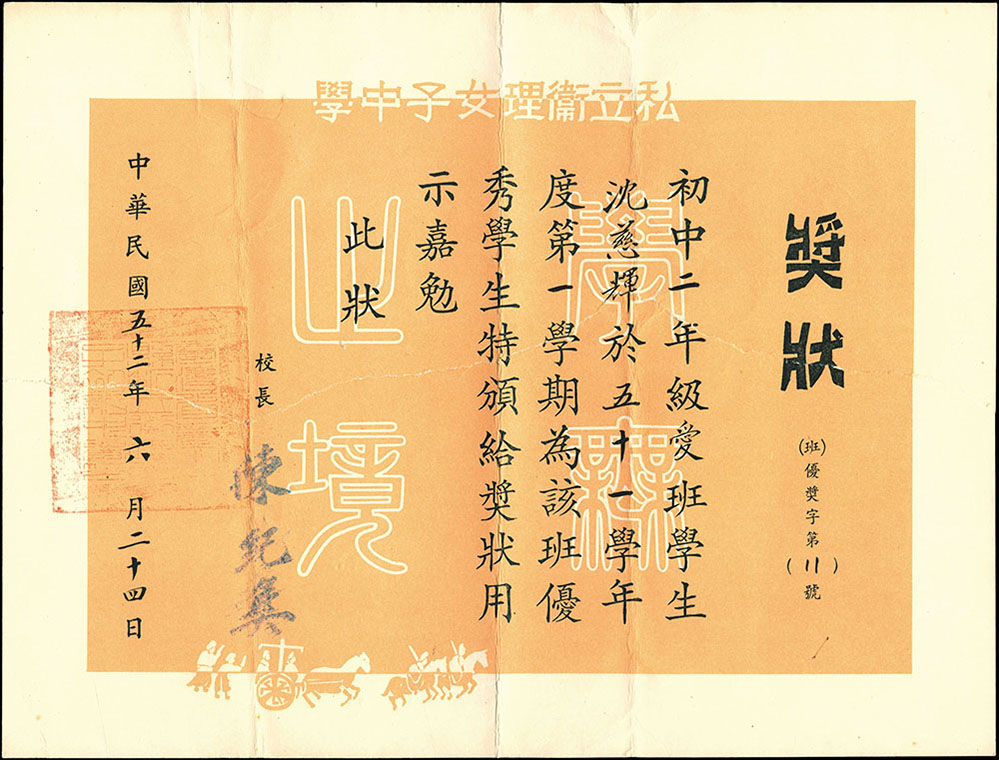 私立衞理女子中學
獎狀
(班)優獎字第(11)號
初中二年級愛班學生
沈慈輝於五十一學年
度第一學期為該班優
秀學生特頒給獎狀用
示嘉勉
此狀
校長 陳紀彝
中華民國五十二年六月二十四日
學無
止境